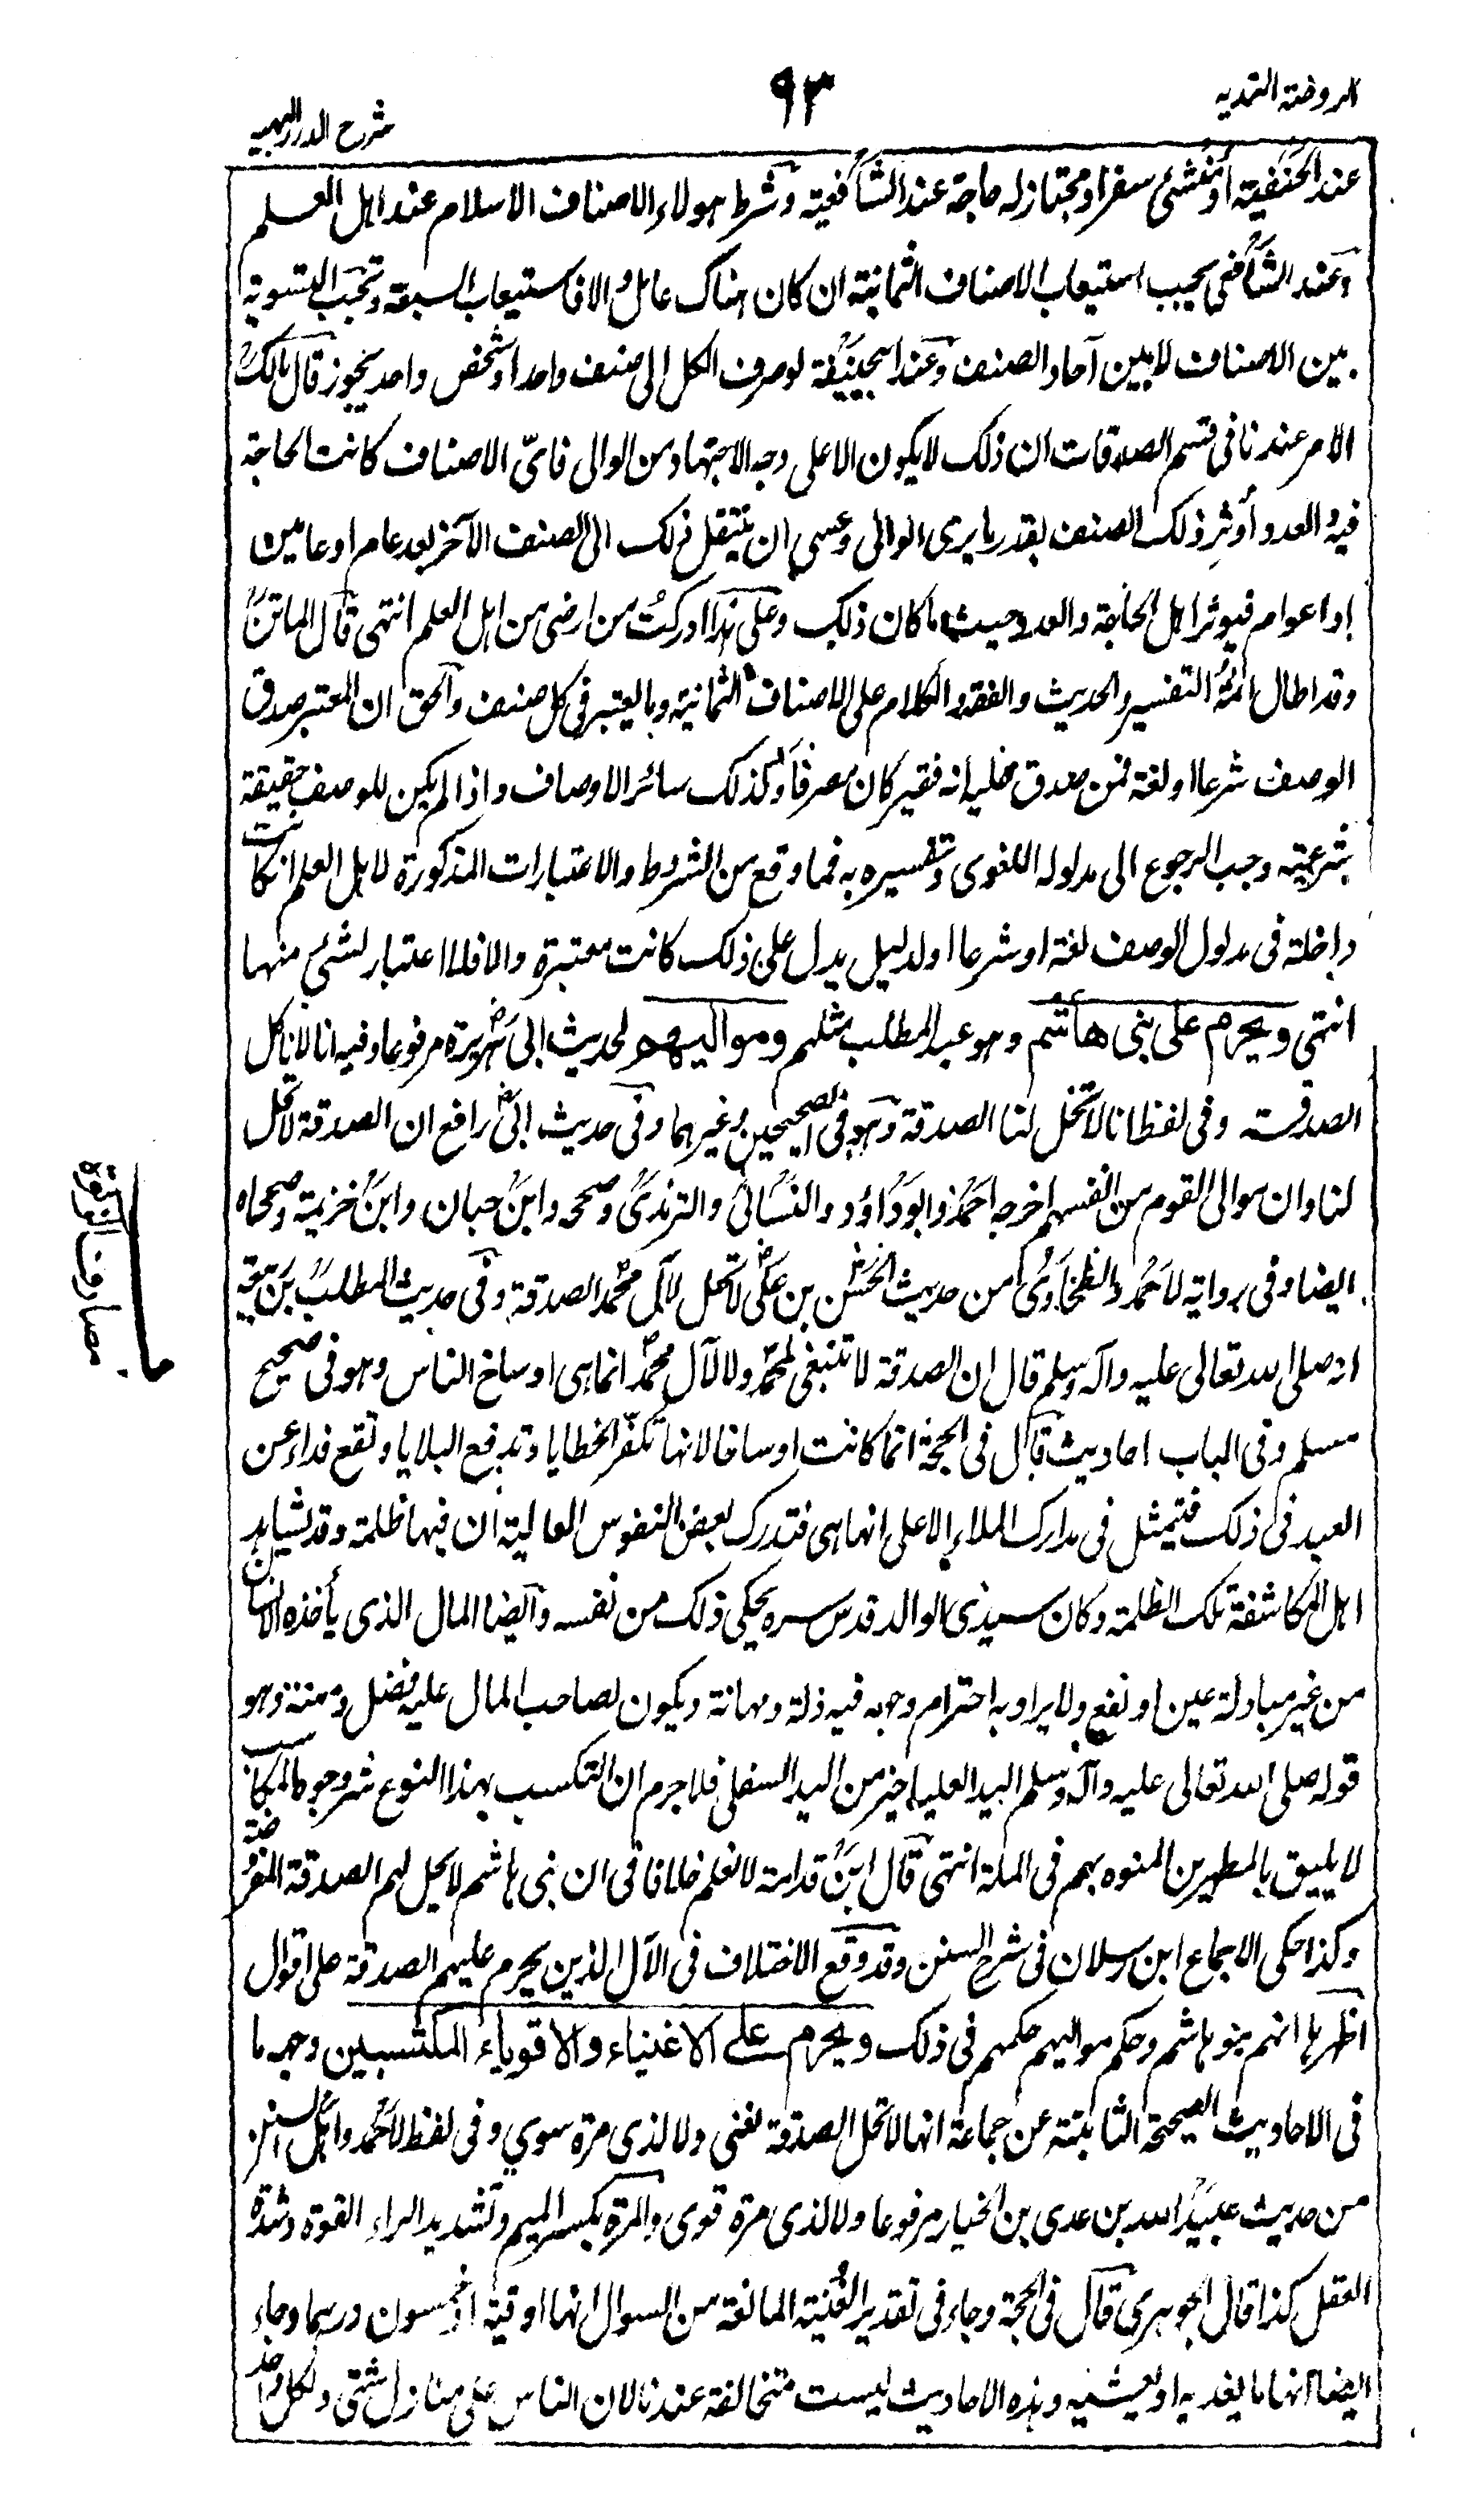 الروضة الندية
٩٣
شرح الدرر البهية
عند الحنفية أو منشئ سفر او مجتاز له حاجة عند الشافعية وشرط هولاء الاصناف الاسلام عند اهل العلم
وعند الشافعي يجب استيعاب الاصناف الثمانية ان كان هناك عامل والا فاستيعاب السبعة وتجب التسوية
بين الاصناف لا بين آحاد الصنف وعند ابيحنيفة لو صرف الكل الى صنف واحد او شخص واحد يجوز قال مالك
الامر عندنا فى قسم الصدقات ان ذلك لا يكون الا على وجه الاجتهاد من الوالى فاىّ الاصناف كانت الحاجة
فيه والعدد أوثر ذلك الصنف بقدر ما يرى الوالى وعسى ان ينتقل ذلك الى الصنف الآخر بعد عام او عامين
او اعوام فيوثر اهل الحاجة والعدد حيث ما كان ذلك وعلى هذا ادركتُ من ارضى من اهل العلم انتهى قال الماتن
وقد اطال ائمة التفسير والحديث والفقه الكلام على الاصناف الثمانية وما يعتبر فى كل صنف والحق ان المعتبر صدق
الوصف شرعا او لغة فمن صدق عليه انه فقير كان مصرفا وكذلك سائر الاوصاف واذا لم يكن للوصف حقيقة
شرعية وجب الرجوع الى مدلوله اللغوى وتفسيره به فما وقع من الشروط والاعتبارات المذكورة لاهل العلم ان كانت
داخلة فى مدلول الوصف لغة او شرعا او لدليل يدل على ذلك كانت معتبرة والا فلا اعتبار لشئ منها
انتهى ويحرم على بنى هاشم وهو عبد المطلب مثلهم ومواليهم لحديث ابى هريرة مرفوعا وفيه انا لا ناكل
الصدقة وفى لفظ انا لا تحل لنا الصدقة وهو فى الصحيحين وغيرهما وفى حديث ابى رافع ان الصدقة لا تحل
لنا وان موالى القوم من انفسهم اخرجه احمد وابو داؤد والنسائى والترمذى وصححه وابن حبان وابن خزيمة وصححاه
ايضا وفى رواية لاحمد والطحاوى من حديث الحسن بن على لا تحل لآل محمد الصدقة وفى حديث المطلب بن ربيعة
انه صلى الله تعالى عليه وآله وسلم قال ان الصدقة لا تنبغى لمحمد ولا لآل محمد انما هى اوساخ الناس وهو فى صحيح
مسلم وفى الباب احاديث قال فى الحجة انما كانت اوساخا لانها تكفّر الخطايا وتدفع البلايا وتقع فداء عن
العبد فى ذلك فيتمثل فى مدارك الملاء الاعلى انها هى فتدرك بعض النفوس العالية ان فيها ظلمة وقد يشاهد
اهل المكاشفة تلك الظلمة وكان سيدى الوالد قدس سره يحكى ذلك من نفسه وايضا المال الذى يأخذه الانسان
من غير مبادلة عين او نفع ولا يراد به احترام وجهه فيه ذلة ومهانة ويكون لصاحب المال عليه فضل ومنة وهو
قوله صلى الله تعالى عليه وآله وسلم اليد العليا خير من اليد السفلى فلا جرم ان التكسب بهذا النوع شر وجوه المكاسب
لا يليق بالمطهرين المنوه بهم فى الملة انتهى قال ابن قدامة لا نعلم خلافا فى ان بنى هاشم لا تحل لهم الصدقة المفروضة
وكذا حكى الاجماع ابن رسلان فى شرح السنن وقد وقع الاختلاف فى الآل الذين يحرم عليهم الصدقة على اقوال
اظهرها انهم بنو هاشم وحكم مواليهم حكمهم فى ذلك ويحرم على الاغنياء والاقوياء المكتسبين وجهه ما
فى الاحاديث الصحيحة الثابتة عن جماعة انها لا تحل الصدقة لغنى ولا لذى مرة سوي وفى لفظ لاحمد واهل السنن
من حديث عبيد الله بن عدى بن الخيار مرفوعا ولا لذى مرة قوى والمرة بكسر الميم وتشديد الراء القوة وشدة
العقل كذا قال الجوهرى قال فى الحجة وجاء فى تقدير الغنية المانعة من السوال انها اوقية او خمسون درهما وجاء
ايضا انها ما يغديه او يعشيه وهذه الاحاديث ليست متخالفة عندنا لان الناس على منازل شتى ولكل واحد
مصارف الزكوة